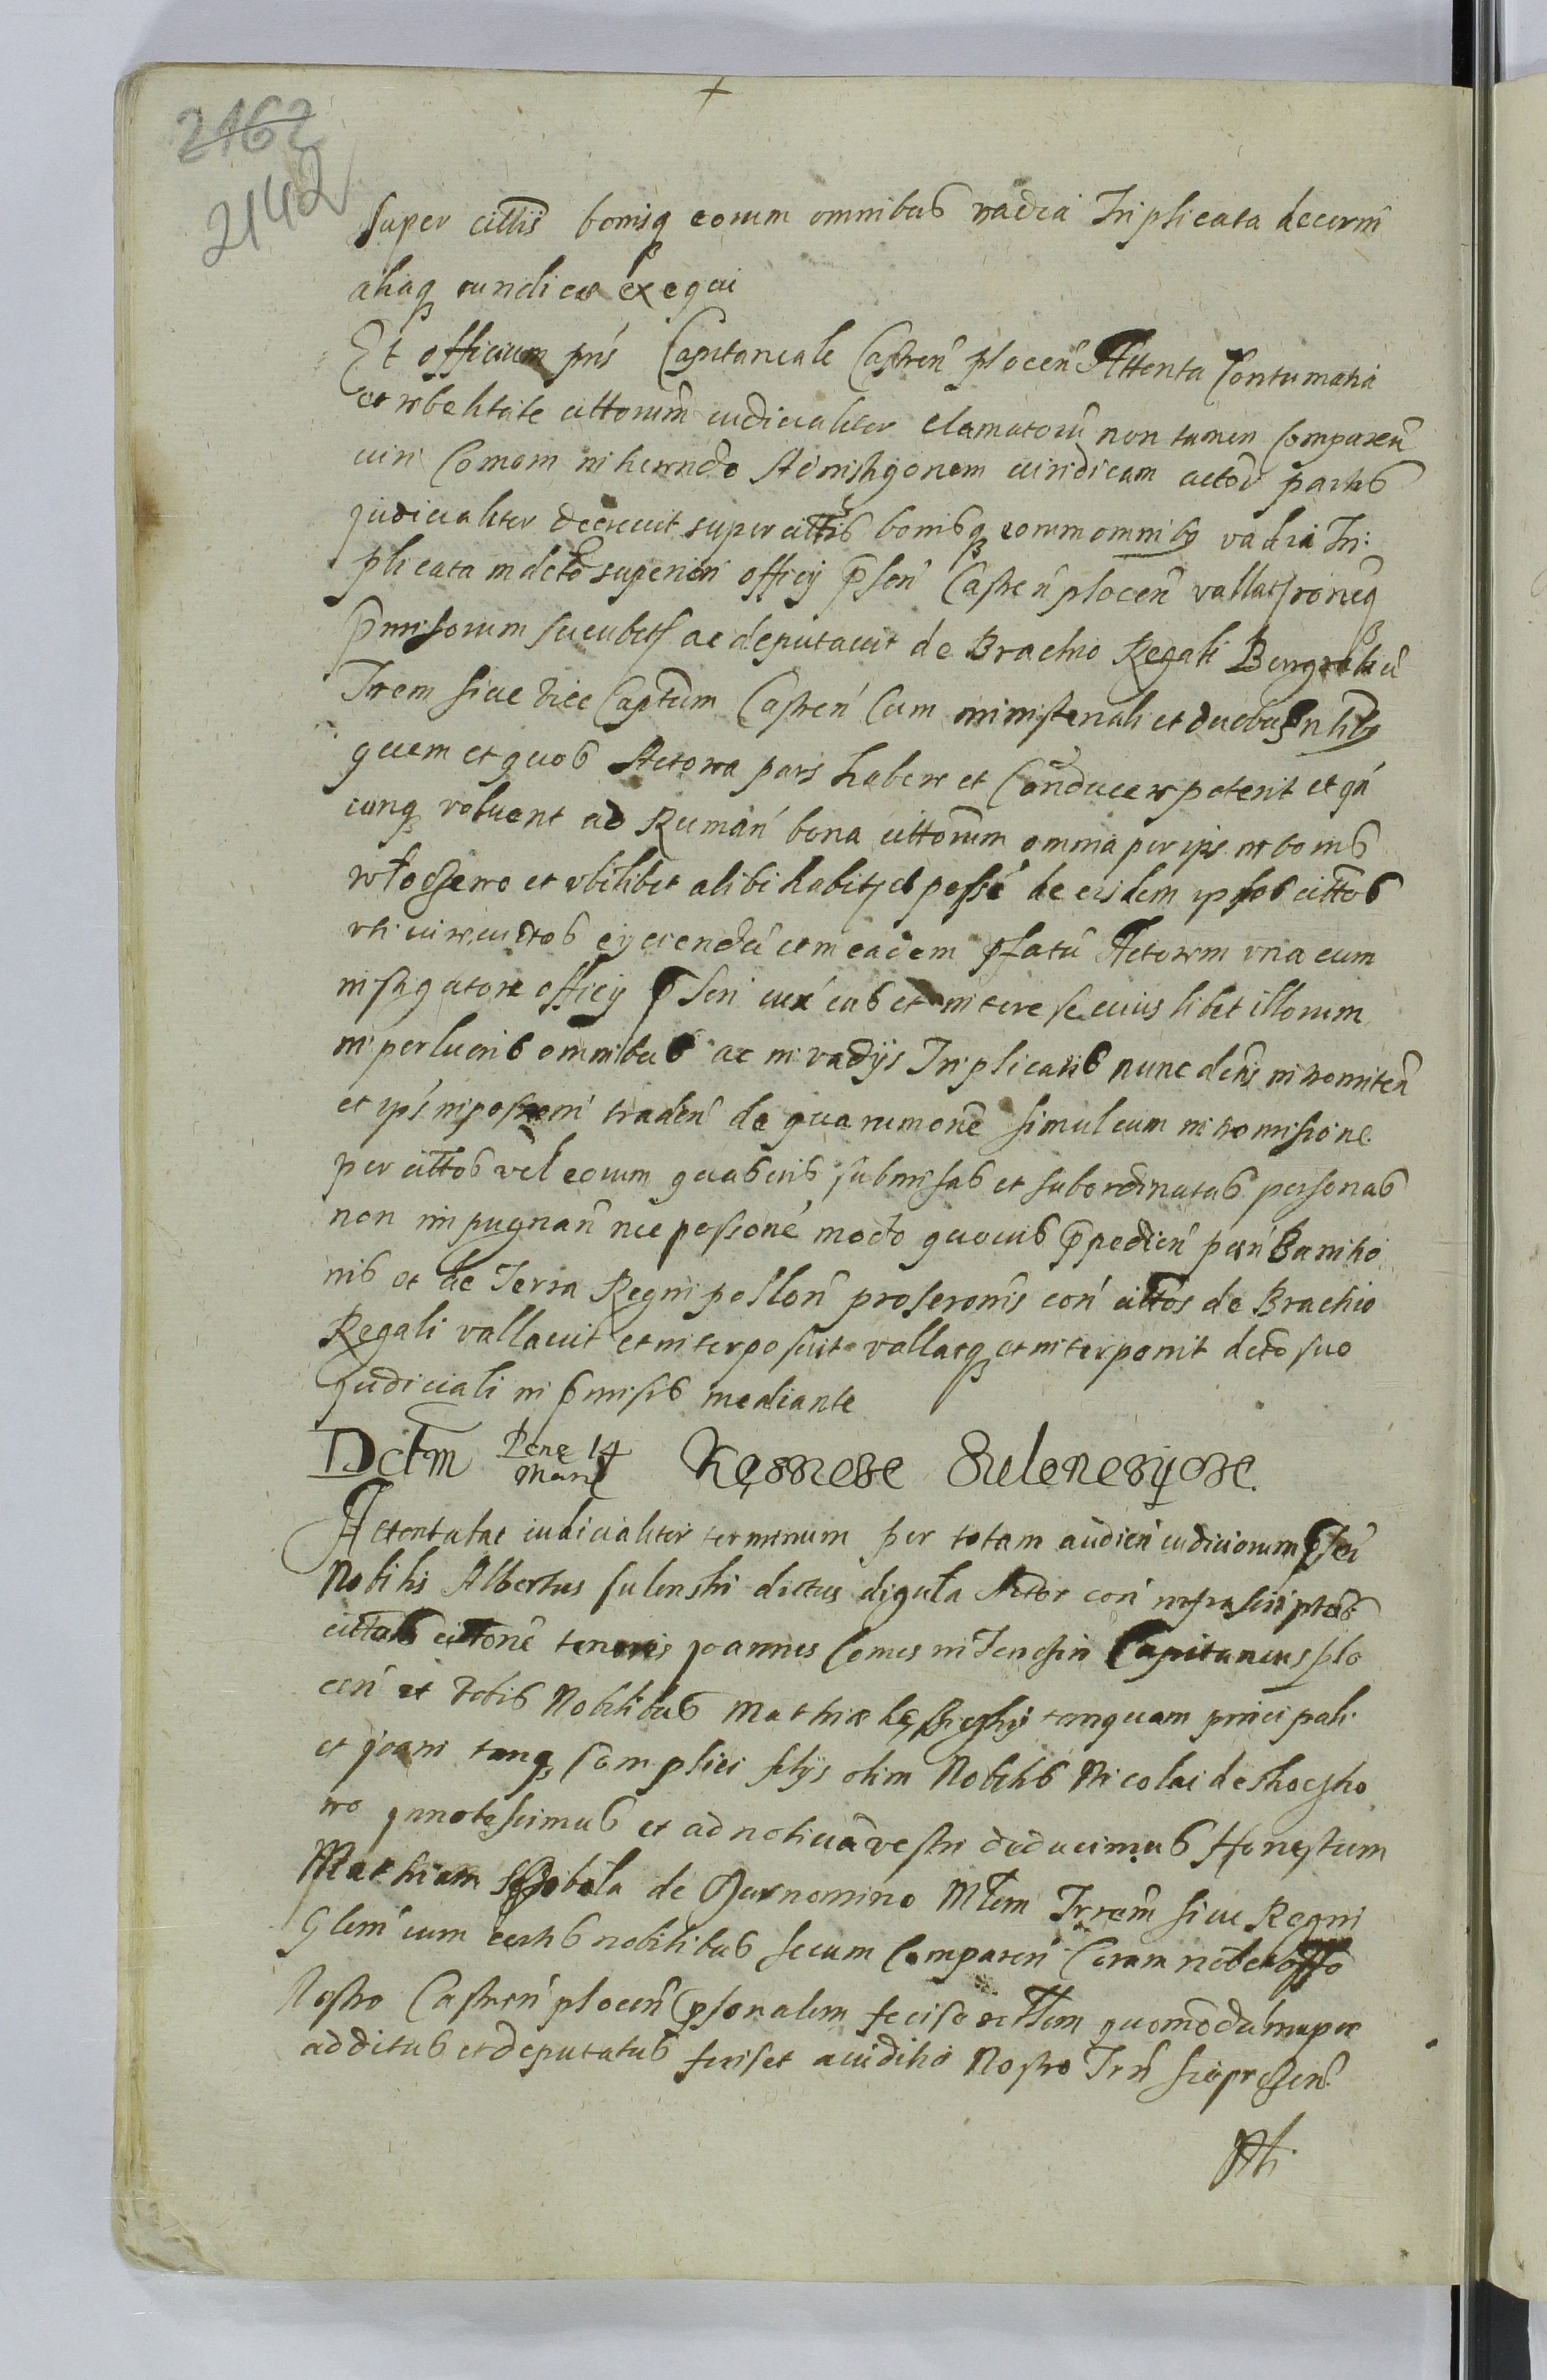 2162
2142
super cittis bonisq eorum omnibus vadia Triplicata decerni
aliaq iuridice exequi
Et officium pns Capitaneale Castren plocen Attenta Contumatia
et rebelitate cittorum iudicialiter clamatoru non tamen Comparen
iuri Comom inherendo Adinstігonem iuridicam actoree partis
judicialiter decrevit super cittis bonisq eorum omnibg vadia Tri:
plicata in dcto superiori officy psen Castren plocen vallat
pmissorum ac deputavit de Brachio Regali Burgrabiu
Trem siue vice Captum Castren Cum ministeriali et duobus nlibg
quem et quos Actorea pars habere et Conducere poterit et qn
cunq voluerit ad Ruman bona cittorum omnia per ips in bonis
et vbilibet alibi habit et posse de eisdem ipsos cittos
vti iure victos eyciendu cum eadem pfatu Actorem vna cum
instigatore officy psen cui eius et interesse cuius libet illorum
in perlucris omnibus ac in vadys Triplicatis nunc dctis intromiten
et ips in possessioni traden de qua rumone simul cum intromisione
per cittos vel eorum quasvis submisas et subordinatas personas
non impugnan nec possione modo quovis ppedien pen Banitio
nis et de Terra Regni pollon proscronis con cittos de Brachio
Regali vallavit et interposuit vallatq et interponit dcto suo
judiciali in pmisis mediante
Dctm Pene 14 Marc Sulenesyose.
Attentabat iudicialiter terminum per totam audien iudiciorum psen
Nobilis Albertus sulenski dictus digula Actor con infrascriptos
cittatos cittone tenoris joannes Comes in Tenczin Capitaneus plo
cen et vobis Nobilibus Mathiae tanquam principali
et joani tanq Complici filys olim Nobilis Nicolai de
wo jnnotescimus et ad noticia vestri deducimus Honestum
Mathiam de Mlem Trrem siue Regni
Glem cum certis nobilibus secum Comparen Coram nobis et offo
Nostro Castren plocen psonalem fecise rcttem quomodo nuper
additus et deputatus fuiset a iuditio Nostro Trn siue presen
Ati